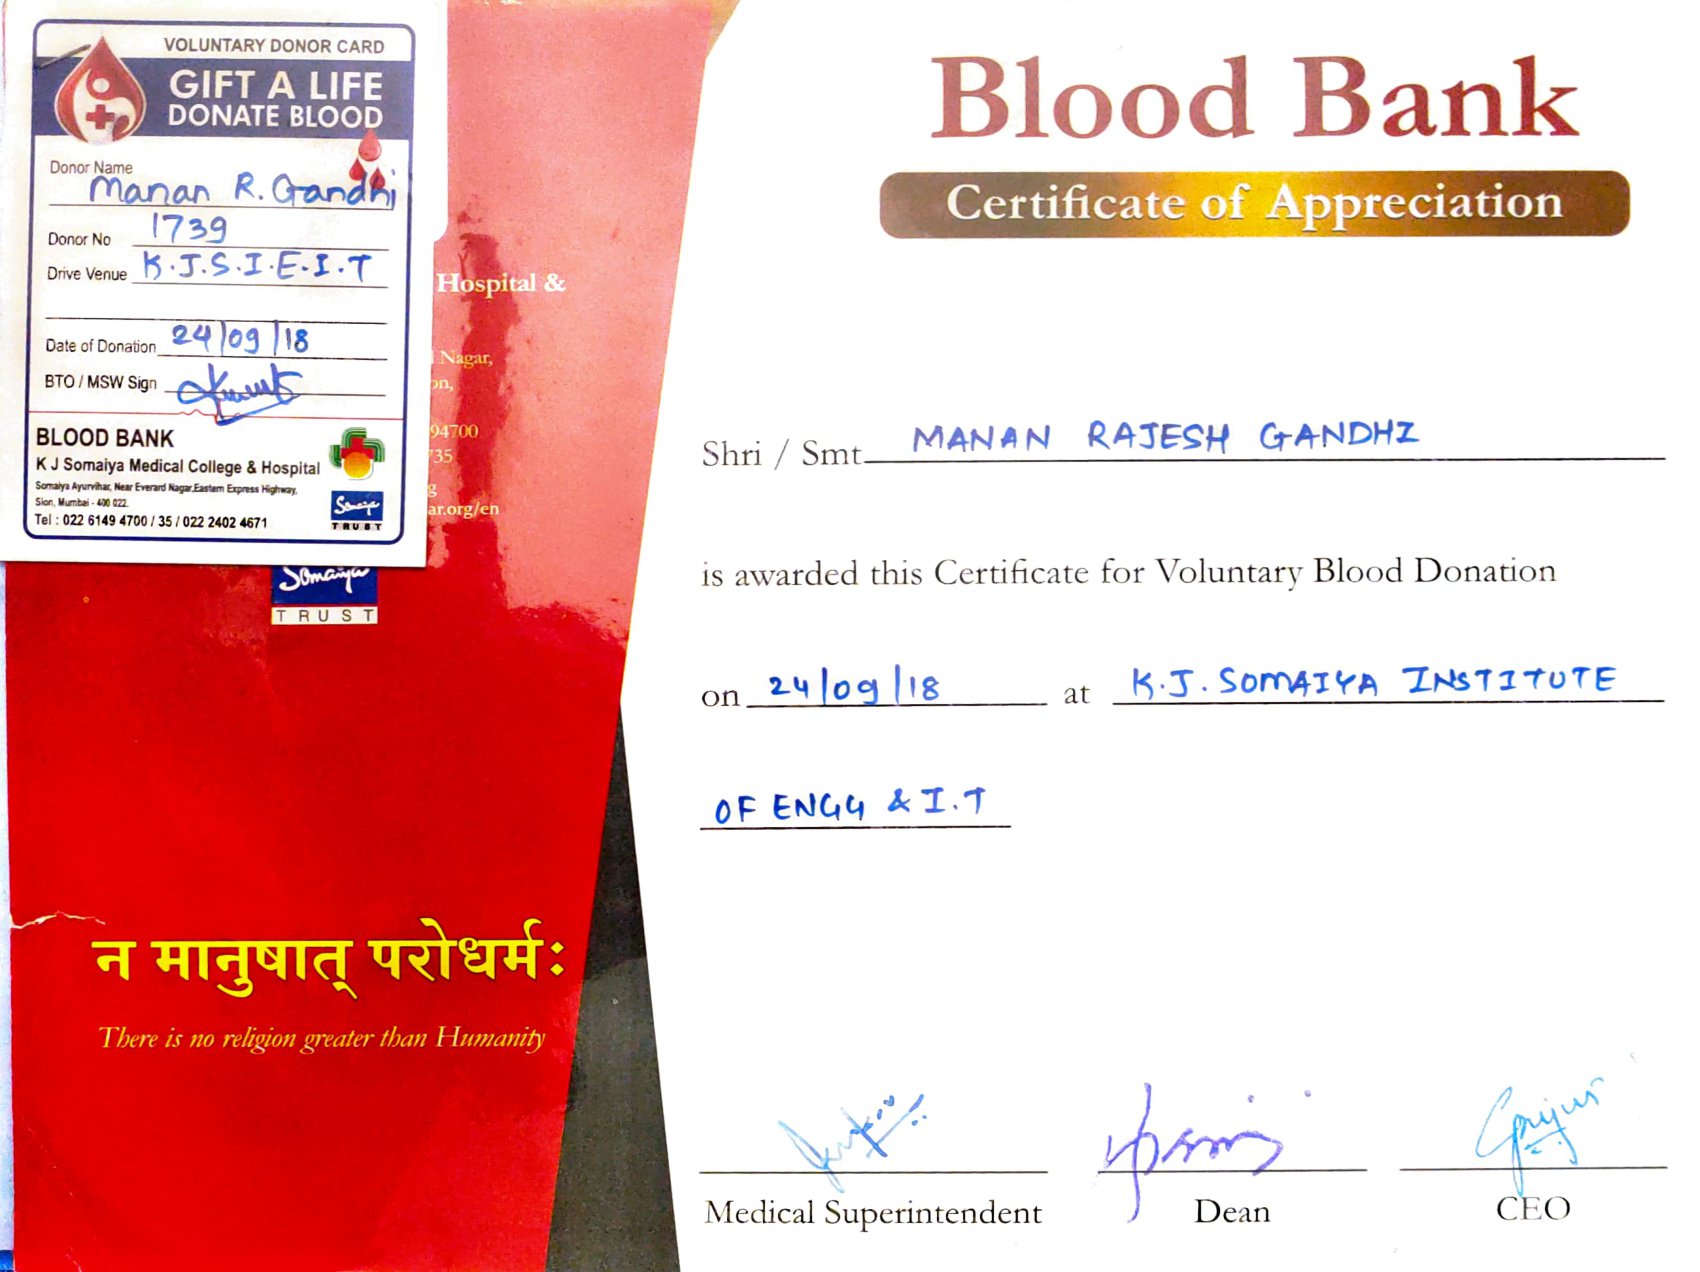 VOLUNTARY DONOR CARD
GIFT A LIFE
DONATE BLOOD
Donor Name Manan R. Gandhi
Donor No 1739
Drive Venue K.J.S.I.E.I.T
Date of Donation 24/09/18
BTO / MSW Sign
BLOOD BANK
K J Somaiya Medical College & Hospital
Somaiya Ayurvihar, Near Everard Nagar,Eastern Express Highway,
Sion, Mumbai - 400 022.
Tel : 022 6149 4700 / 35 / 022 2402 4671
Somaiya
TRUST
Hospital &
Nagar,
on,
94700
735
g
ar.org/en
Somaiya
TRUST
न मानुषात् परोधर्मः
There is no religion greater than Humanity
Blood Bank
Certificate of Appreciation
Shri / Smt MANAN RAJESH GANDHI
is awarded this Certificate for Voluntary Blood Donation
on 24/09/18 at K.J. SOMAIYA INSTITUTE
OF ENGG & I.T
Medical Superintendent Dean CEO